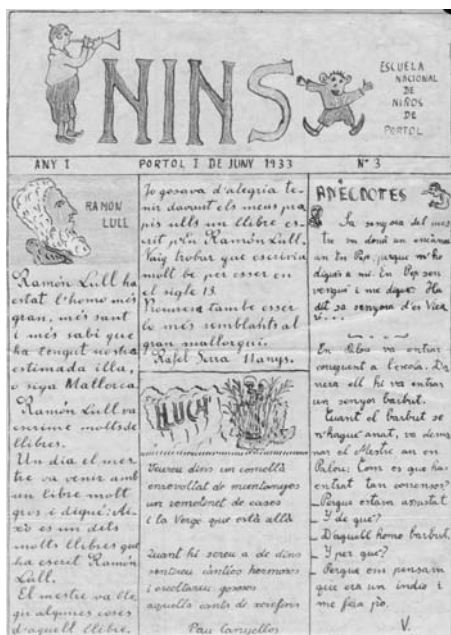 NINS
ESCUELA
NACIONAL
DE
NIÑOS
DE
PORTOL
ANY I
PORTOL 1 DE JUNY 1933
Nº 3
RAMON
LULL
Ramón Lull ha
estat l'homo més
gran, més sant
i més sabi que
ha tengut nostra
estimada illa,
o sigui Mallorca.
Ramón Lull va
escriure molts de
llibres.
Un dia el mes-
tre va venir amb
un libre molt
gros i digué: Ai-
xò es un dels
molts llibres que
ha escrit Ramón
Lull.
El mestre va lle-
gir algunes coses
d'aquell llibre.
Jo gosava d'alegria te-
nir davant els meus pro-
pis ulls un llibre es-
crit p'En Ramón Lull.
Vaig trobar que escrivia
molt be per esser en
el sigle 13.
també esser
lo més semblants al
gran mallorquí.
Rafel Serra 11 anys.
LLUCH
Veureu dins un comellà
enrevoltat de muntanyes
un remolinet de cases
i la Verge que està allà
Quant hi sereu a de dins
sentireu càntics hermosos
i escoltareu gososos
aquells cants de
Pau Canyelles
ANÈCDOTES
Sa senyora del mes-
tre va donà un encàrrec
an En Pep, perque m'ho
digués a mi. En Pep
vengué i me digué: Ha
dit sa senyora d'es
En Palou va entrar
corruguent a l'escola. Da-
rrera ell hi va entrar
un senyor barbut.
Quant el barbut se
n'hagué anat, va dema-
nar el Mestre an en
Palou: Com es que has
entrat tan
_ Perque estam assustat
_ Y de que?
_ D'aquell homo barbut.
_ Y per que?
_ Perque om pensava
que era un indio i
me feia pò.
V.